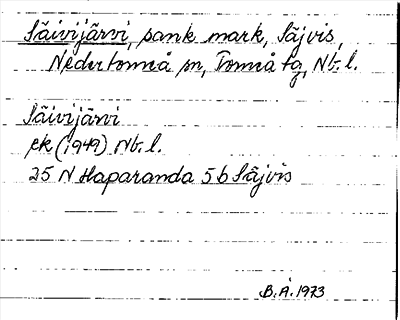 Säivijärvi, sank mark, Säjvis,
Nedertorneå sn, Torneå tg, Nb. l.
Säivijärvi
ek (1949) Nb. l.
25 N Haparanda 5 b Säjvis
B.Å. 1973